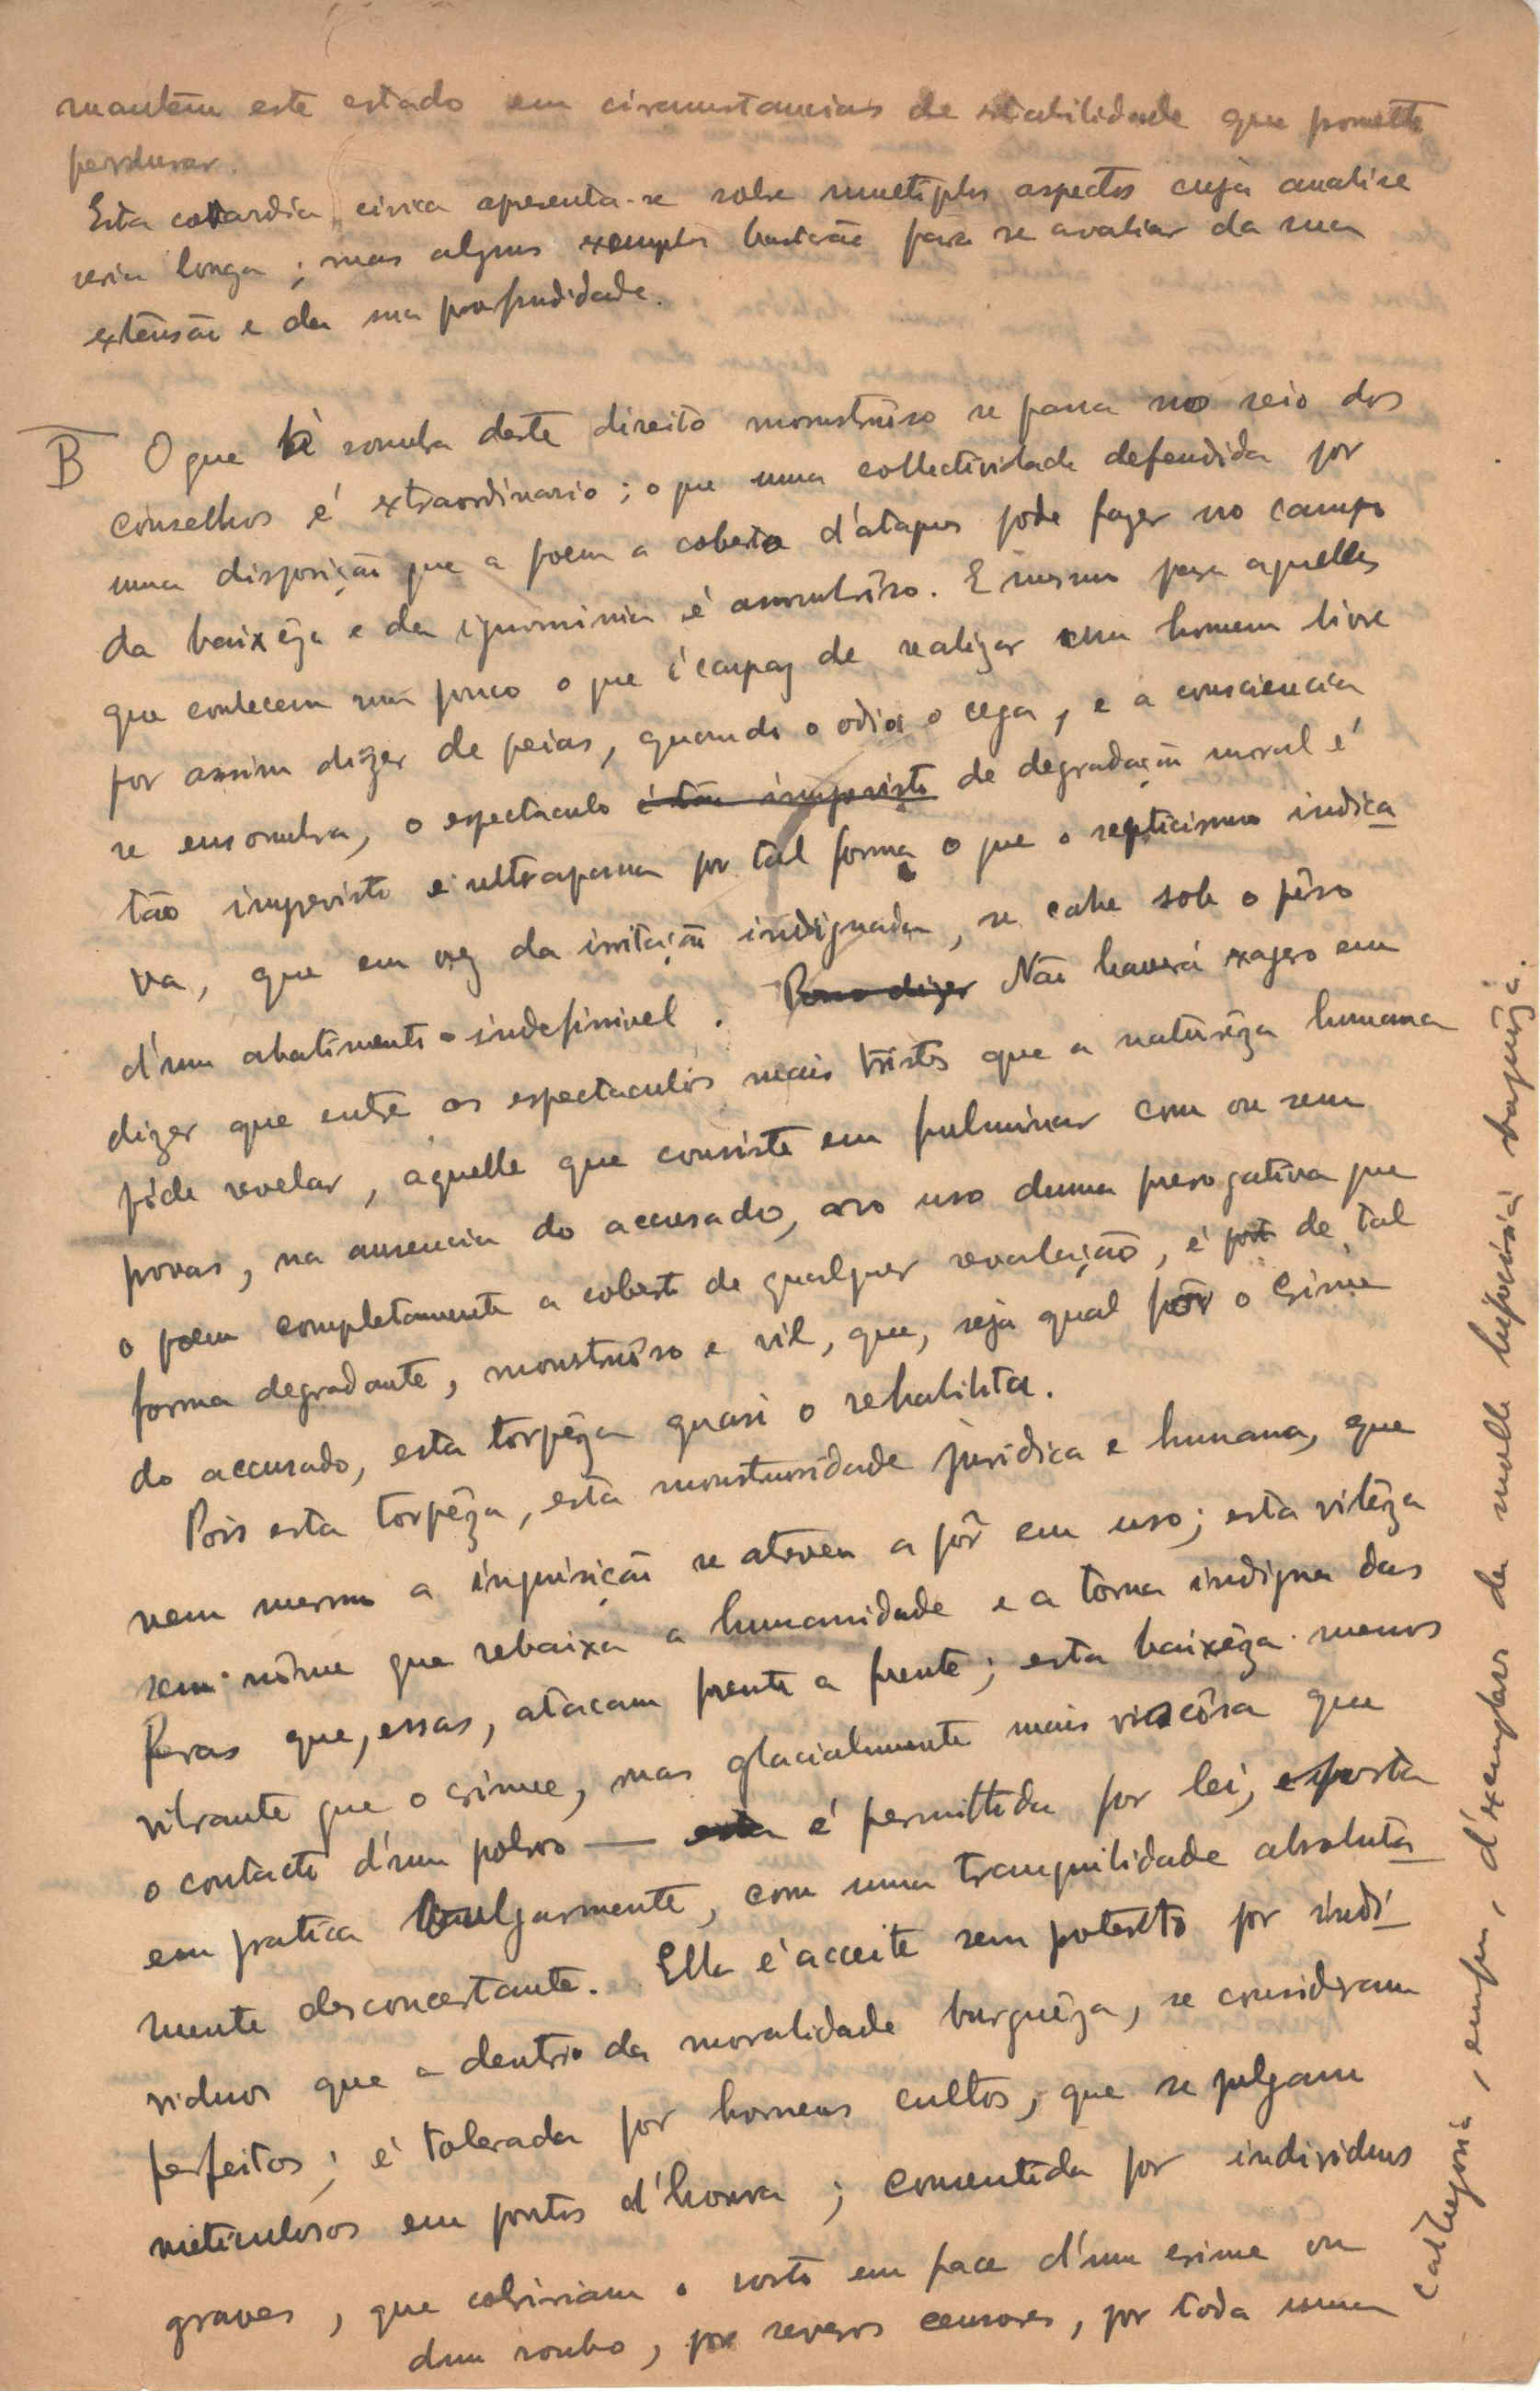 mantêm este estado em circumstancias de estabilidade que promette
perdurar.
Esta cobardia civica apresenta-se sobre multiplos aspectos cuja analise
seria longa; mas alguns exemplos bastarão para se avaliar da sua
extensão e da sua profundidade.
B O que à sombra deste direito monstruôso se passa no seio dos
conselhos é extraordinario; o que uma collectividade defendida por
uma disposição que a põem a coberto d'ataques pode fazer no campo
da baixêza e da ignominia é assombrôso. E mesmo para aquelles
que conhecem um pouco o que é capaz de realizar um homem livre
por assim dizer de peias, quando o odio o cega, e a consciencia
se ensombra, o espectaculo é tão imprevisto de degradação moral é
tão imprevisto e ultrapassa por tal forma o que o septicismo indica
va, que em vez da irritação indignada, se cahe sob o pêso
d'um abatimento indefinivel. Posso dizer Não haverá exagero em
dizer que entre os espectaculos mais tristes que a naturêza humana
póde revelar, aquelle que consiste em fulminar com ou sem
provas, na ausencia do accusado, no uso duma prerogativa que
o poem completamente a coberto de qualquer revelação, é de tal
forma degradante, monstruôso e vil, que, seja qual fôr o crime
do accusado, esta torpêza quasi o rehabilita.
Pois esta torpêza, esta monstruosidade juridica e humana, que
nem mesmo a inquisição se atreveu a pôr em uso; esta vilêza
sem nôme que rebaixa a humanidade e a torna indigna das
feras que, essas, atacam frente a frente; esta baixêza menos
vibrante que o crime, mas glacialmente mais viscôsa que
o contacto d'um polvo — esta é permittida por lei, e posta
em pratica vulgarmente, com uma tranquilidade absoluta
mente desconcertante. Ella é acceite sem protesto por indi-
viduos que a dentro da moralidade burguêza, se consideram
perfeitos; é tolerada por homens cultos, que se julgam
meticulosos em pontos d'honra; consentida por individuos
graves, que cobririam o rosto em face d'um crime ou
dum roubo, por severos censores, por toda uma
cathegoria, enfim, d'exemplares da molle hipocrisia burguêza.